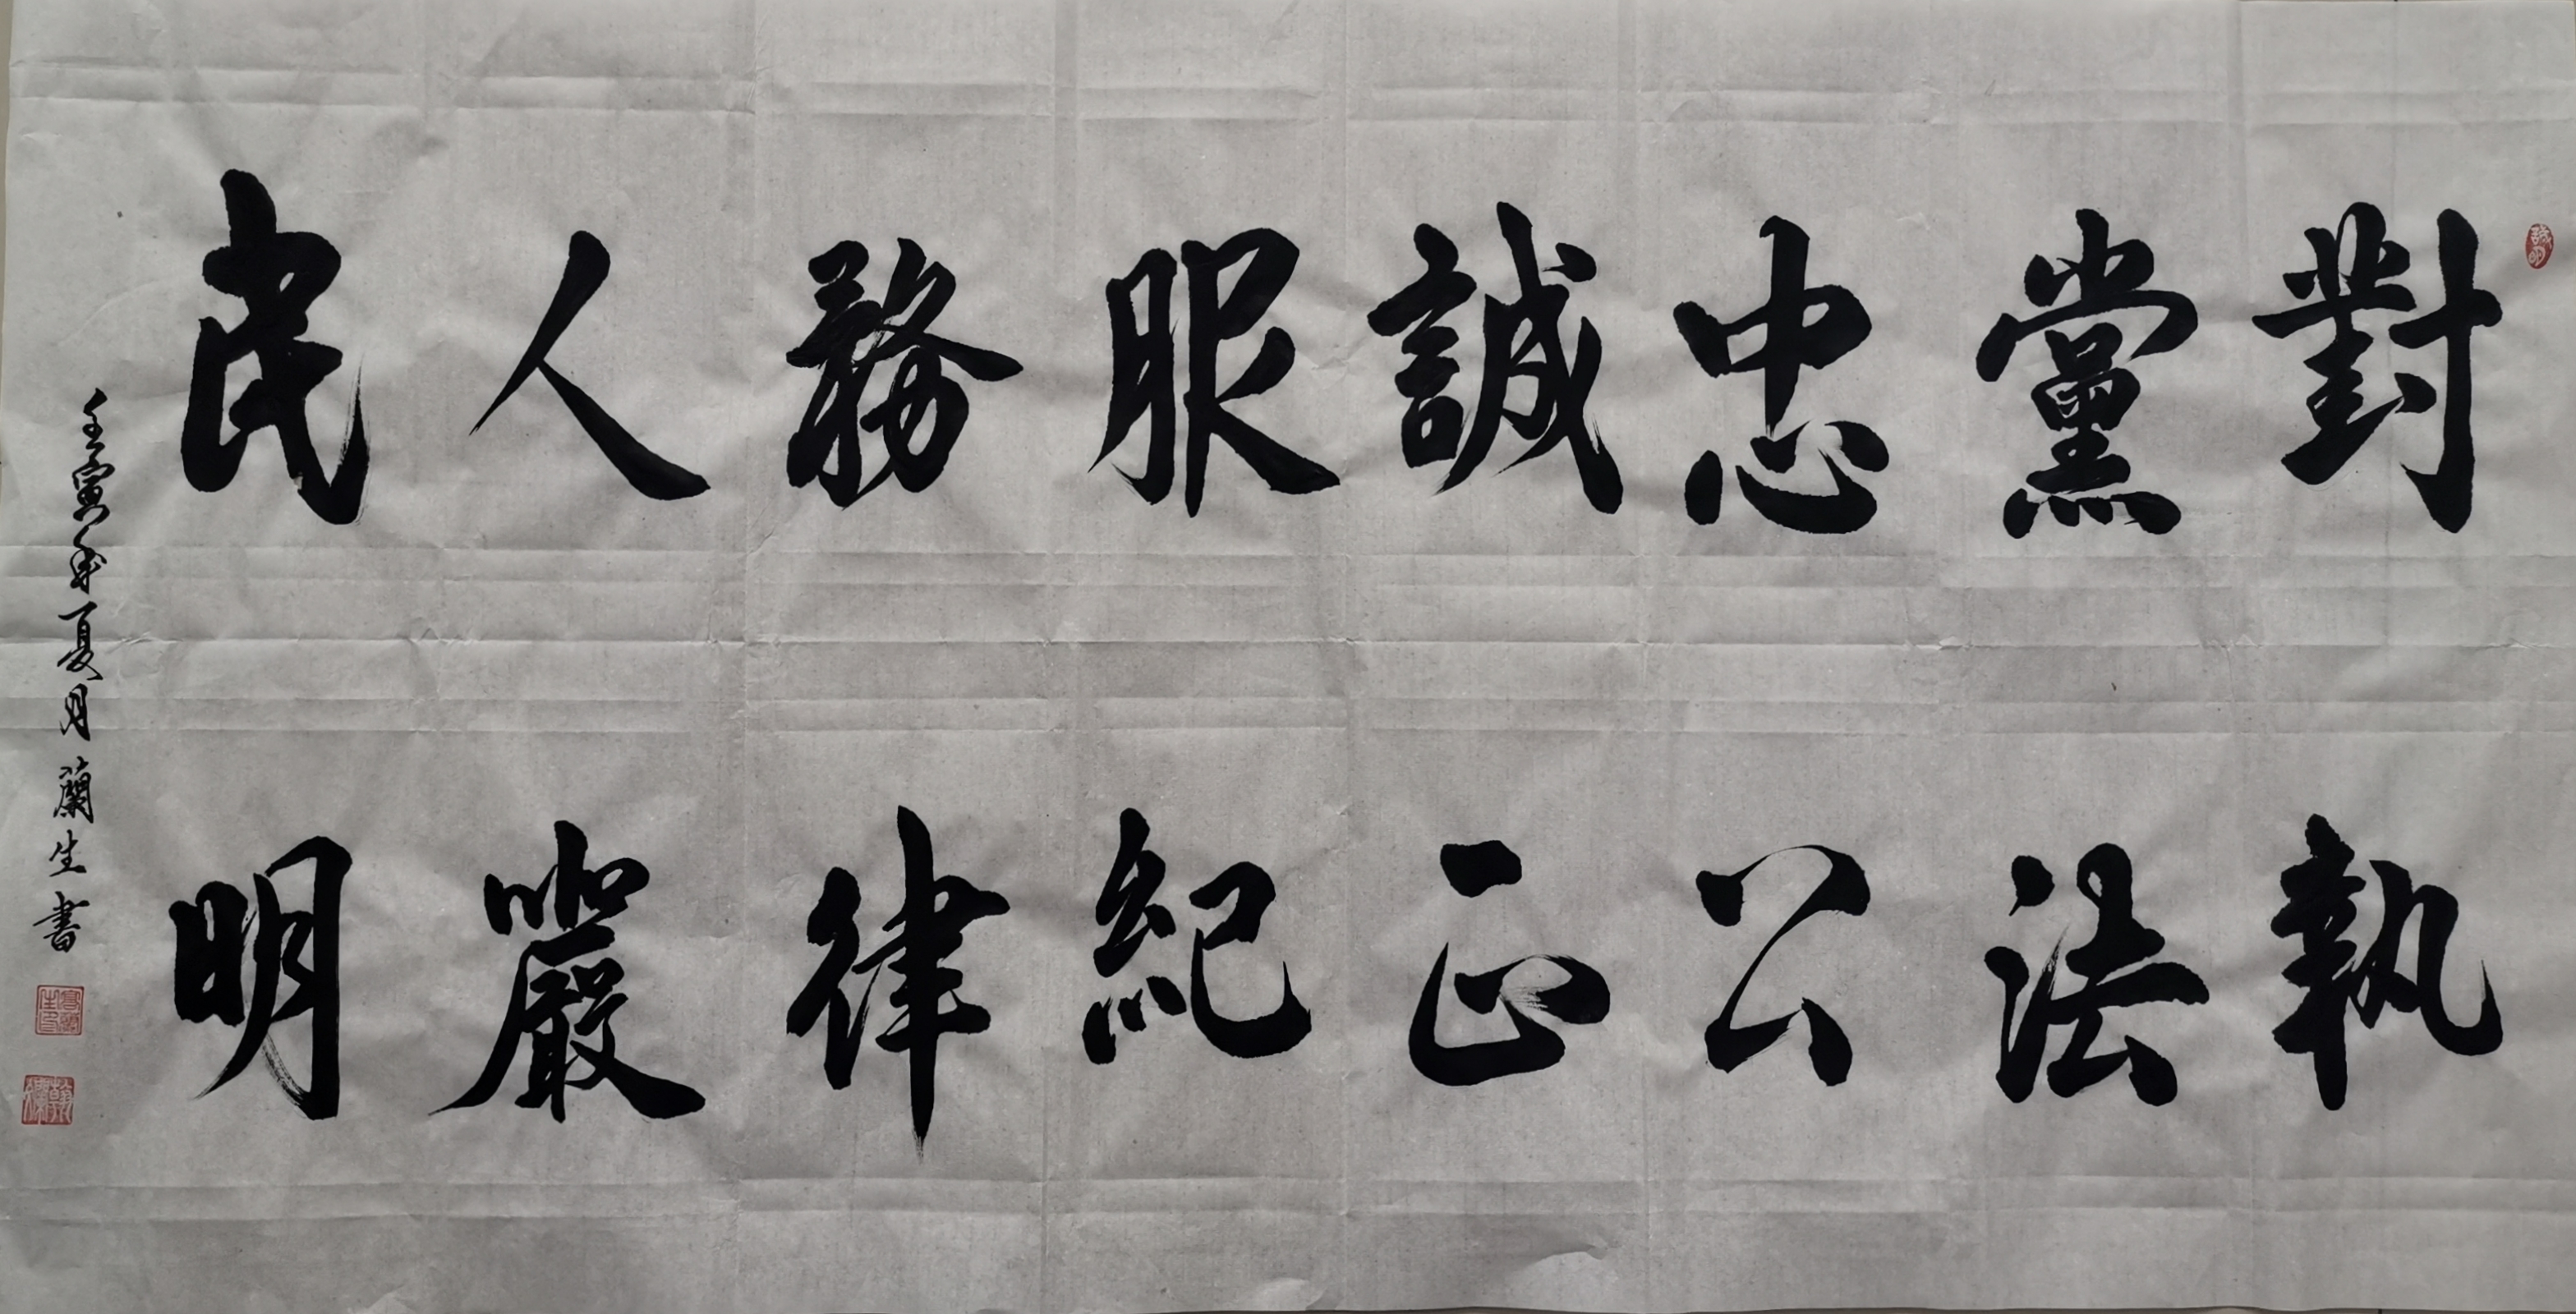 對黨忠誠服務人民
執法公正紀律嚴明
壬寅年夏月蘭生書